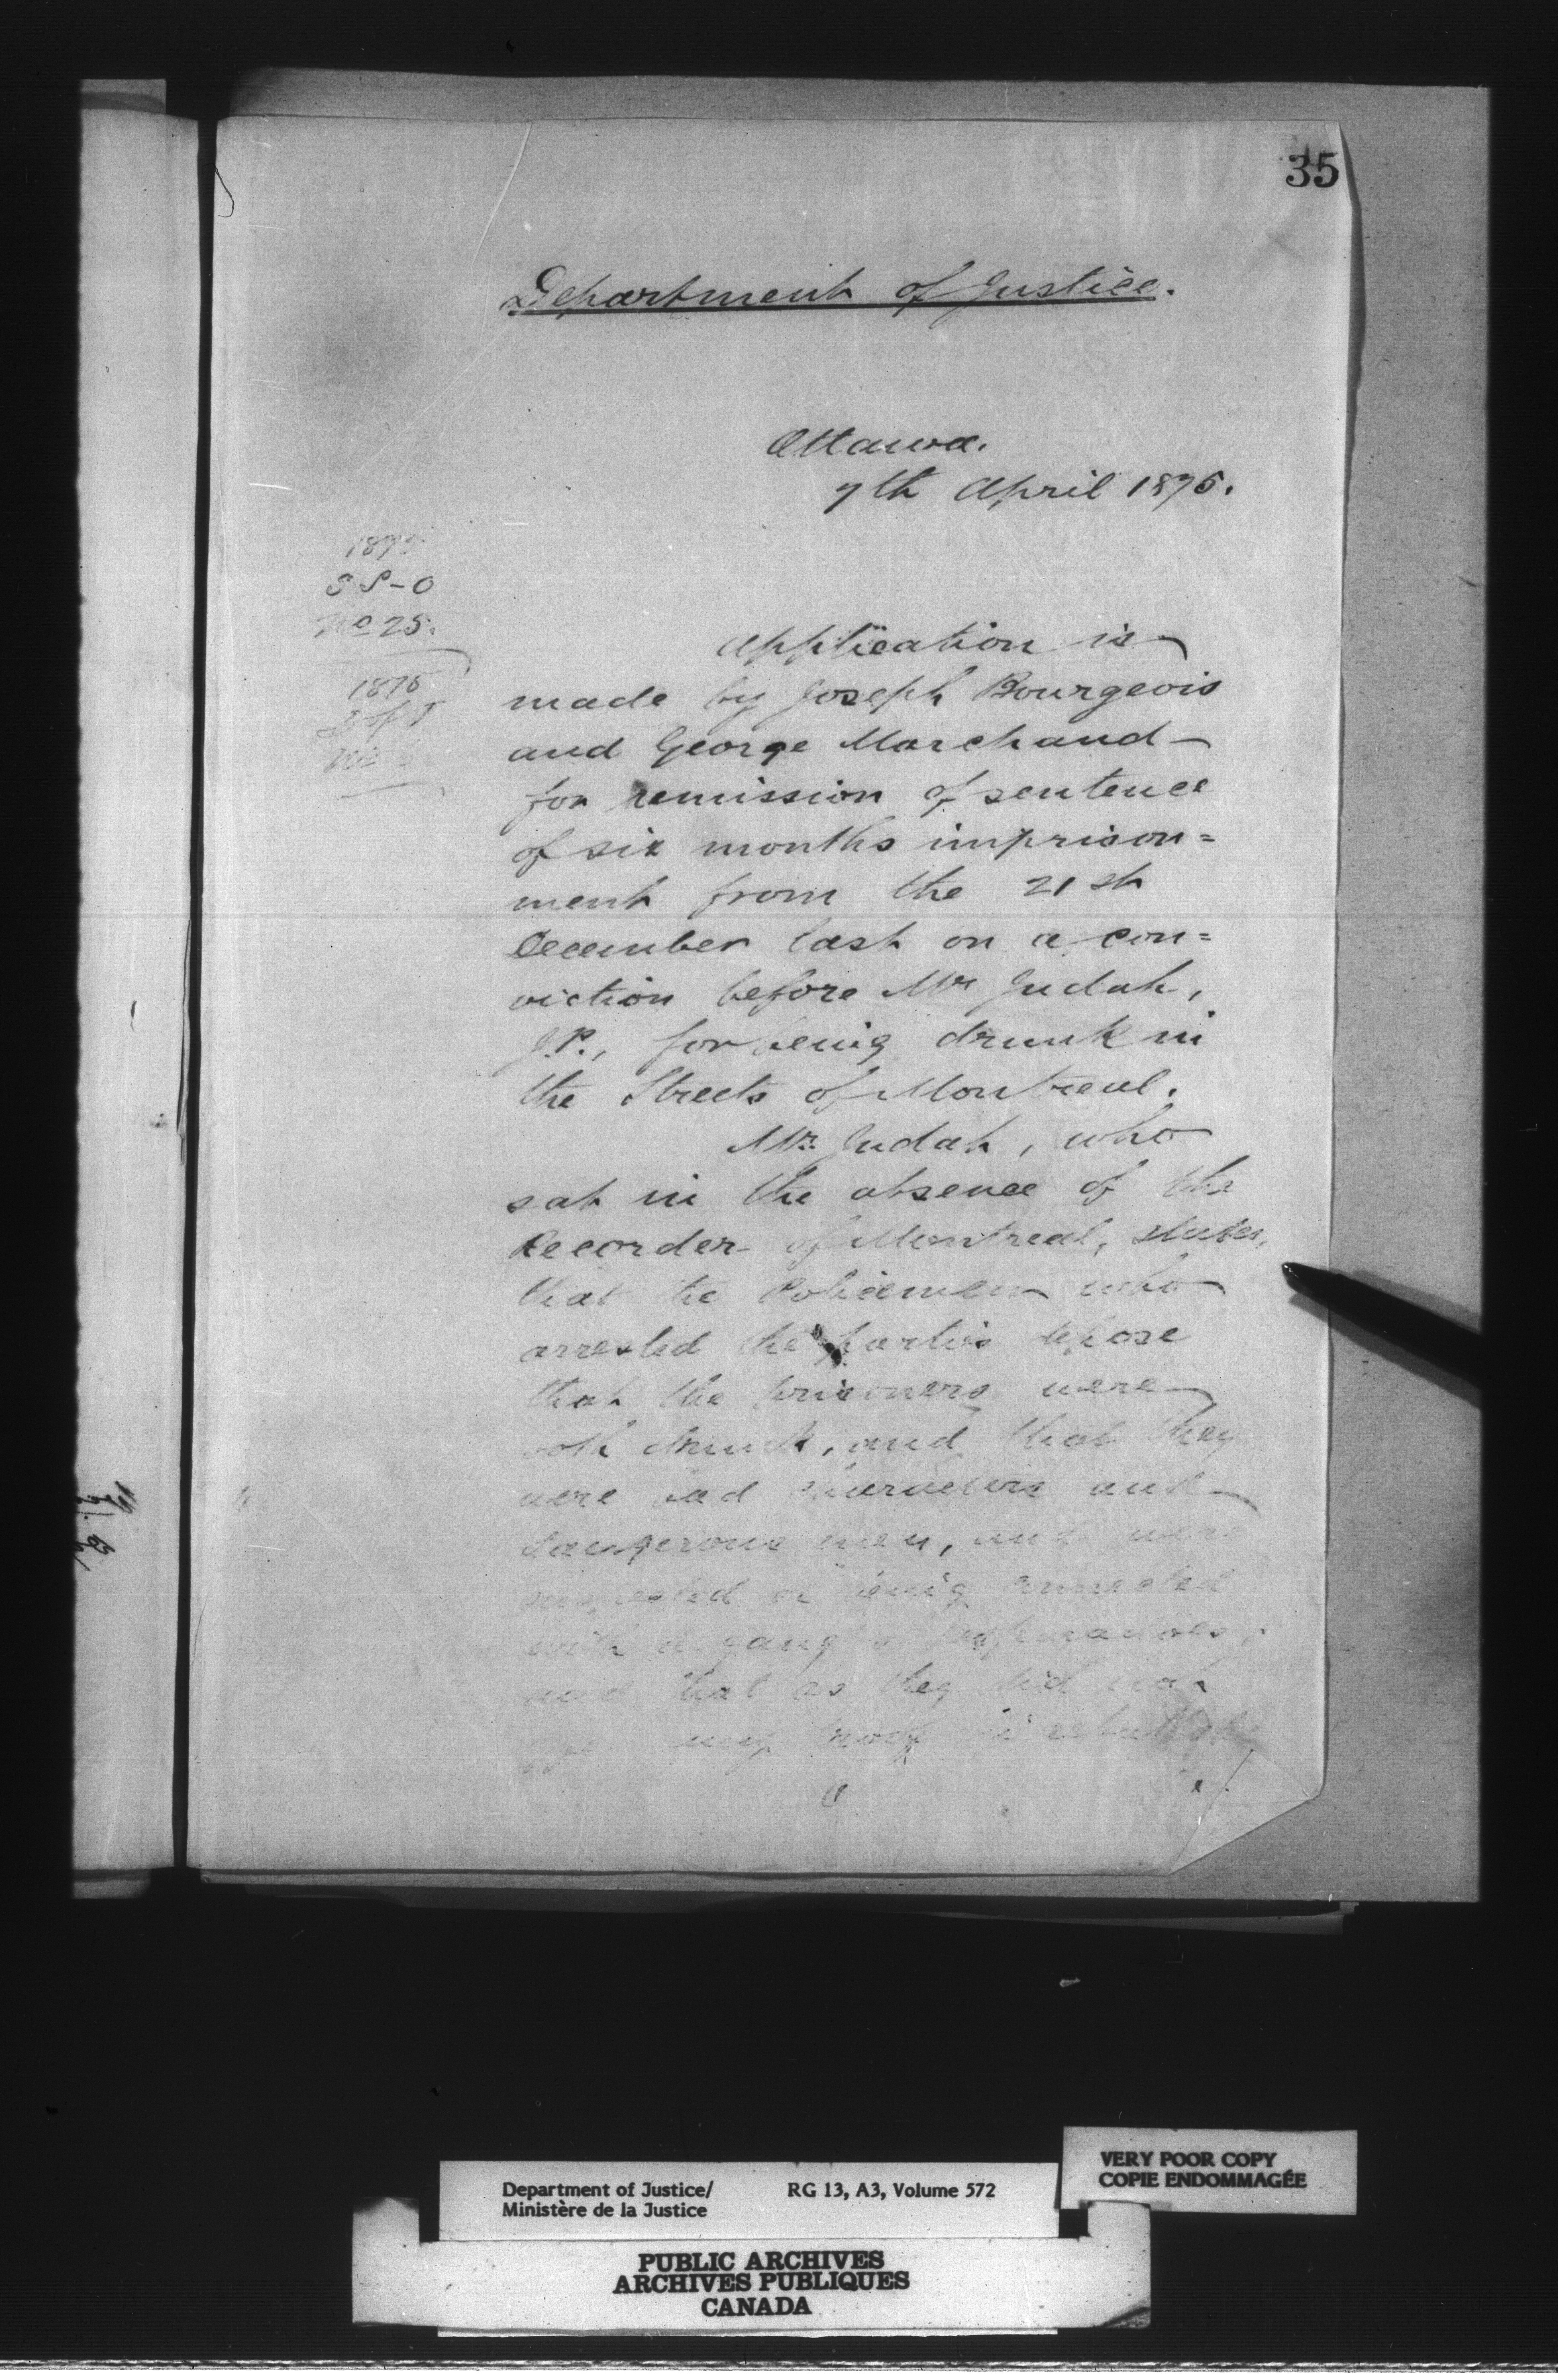 35
Department of Justice.
Ottawa.
7th April 1875.
1875
S S - O
No 25.
1875
D of J
No
Application is
made by Joseph Bourgeois
and George Marchand
for remission of sentence
of six months imprison=
ment from the 21st
December last on a con=
viction before Mr Judah,
J.P., for being drunk in
the Streets of Montreal.
Mr. Judah, who
sat in the absence of the
Recorder of Montreal, states,
that the Policemen who
arrested the parties depose
that the prisoners were
both drunk, and that they
were bad characters and
dangerous men, and were
suspected of being connected
with a gang of
and that as they did not
any proof in
Department of Justice/
Ministère de la Justice
RG 13, A3, Volume 572
VERY POOR COPY
COPIE ENDOMMAGÉE
PUBLIC ARCHIVES
ARCHIVES PUBLIQUES
CANADA